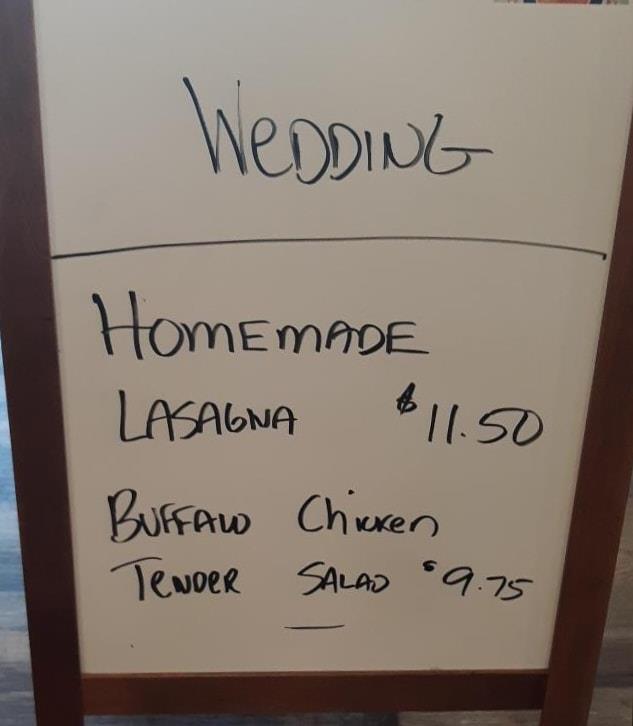 WeDDING
HOMEMADE
LASAGNA $11.50
BUFFALO Chicken
TENDER SALAD $9.75